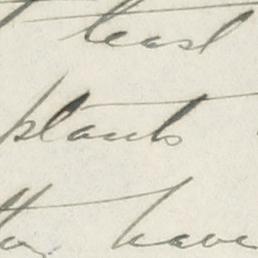 least
plants
have